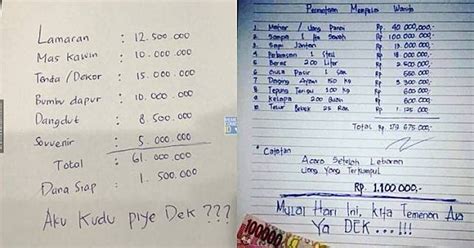 Lamaran : 12.500.000
Mas kawin : 10.000.000
Tenda / Dekor : 15.000.000
Bumbu dapur : 10.000.000
Dangdut : 8.500.000
Souvenir : 5.000.000
Total : 61.000.000
Dana Siap : 1.500.000
Aku Kudu piye Dek ???
Permintaan Mempelai Wanita
1. Mahar / Uang Panai Rp. 40.000.000,-
2. Sompa 1 Ha Sawah Rp. 100.000.000,-
3. Sapi Jantan Rp.
4. 1 Stel Rp.
5. Beras 200 Liter Rp.
6. Gula Pasir 1 Rp.
7. Daging Ayam 150 Kg Rp.
8. Tepung Terigu 100 Kg Rp.
9. Kelapa 200 Buah Rp.
10. Telur Bebek 25 Rak Rp. 1.125.000
Total Rp. 179.675.000,-
* Catatan
Acara Setelah Lebaran
Uang Yang Terkumpul
Rp. 1.100.000,-
Mulai Hari Ini, kita Temenan Aja
Ya DEK...!!!
100000